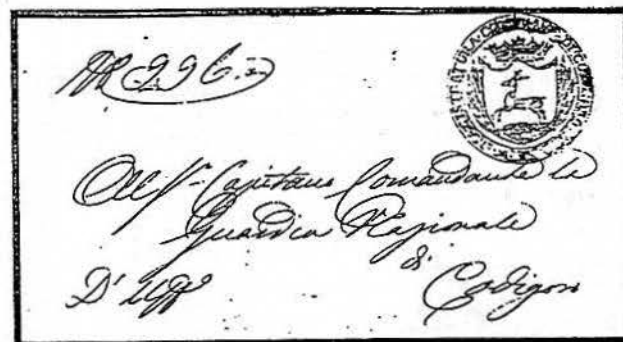 N 226
All' Capitano Comandante la
Guardia Nazionale
di
D' Uff° Codigoro